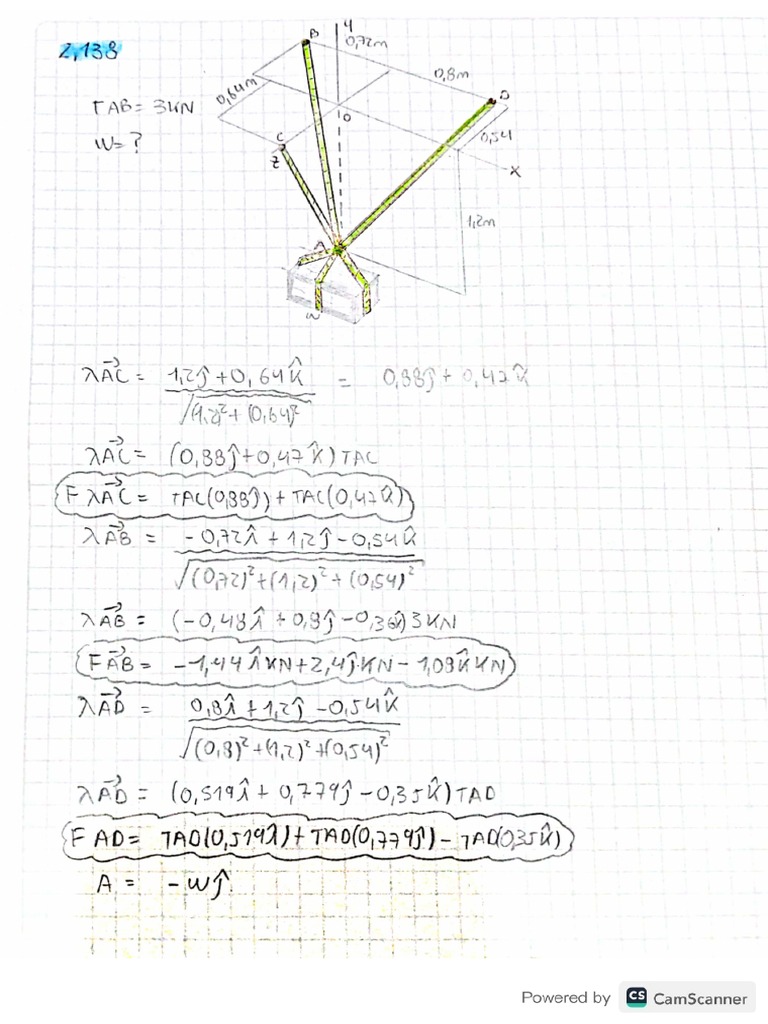 2,138
B
Y
0,72m
0,8m
D
0,64m
TAB= 3KN
W= ?
O
0,54
C
Z
X
1,2m
A
W
λAC⃗ = 1,2ĵ+0,64k̂ / √(1,2)²+(0,64)² = 0,88ĵ + 0,47k̂
λAC⃗ = (0,88ĵ+0,47k̂)TAC
FλAC⃗ = TAC(0,88ĵ)+TAC(0,47k̂)
λAB⃗ = -0,72λ̂ + 1,2ĵ -0,54k̂ / √(0,72)²+(1,2)²+(0,54)²
λAB⃗ = (-0,48λ̂ + 0,8ĵ -0,36k̂)3KN
FAB⃗ = -1,44λ̂KN+2,4ĵKN- 1,08k̂KN
λAD⃗ = 0,8λ̂ +1,2ĵ -0,54k̂ / √(0,8)²+(1,2)²+(0,54)²
λAD⃗ = (0,519λ̂ + 0,779ĵ -0,35k̂)TAD
F AD= TAD(0,519λ̂)+TAD(0,779ĵ)- TAD(0,35k̂)
A = -Wĵ
Powered by CS CamScanner